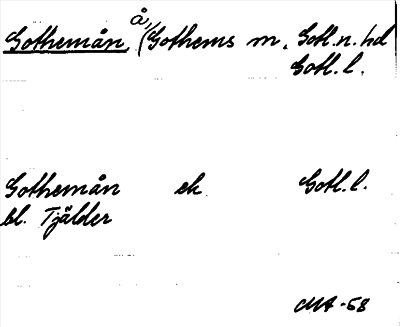 Gothemån å, (Gothems m. Gotl. n. hd
Gotl. l.
Gothemån ek Gotl. l.
bl. Tjälder
MA -58